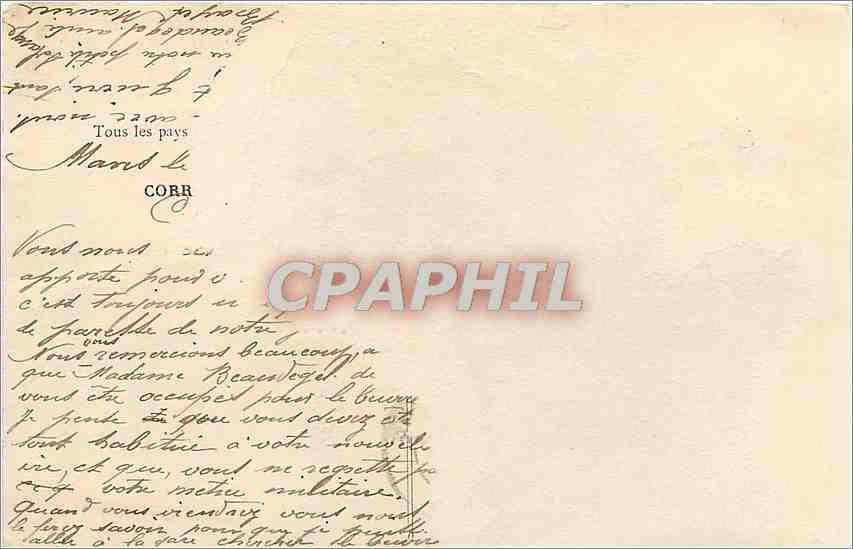 Tous les pays
Mans le
CORR
Vous nous
apporte pour v
c'est toujours u
de paresse de notre
Nous vous remercions beaucoup, a
que Madame Beaudegel de
vous être occupés pour le beurre
Je pense que vous devez
tout habitué à votre nouvelle
vie, et que, vous ne regrette pa
votre métier militaire.
Quand vous viendrez vous nous
le ferez savoir pour que je puisse
aller à la gare chercher le beurre
avec nous.
guerre, tant
notre petit
Beaudegel
Maurice
CPAPHIL